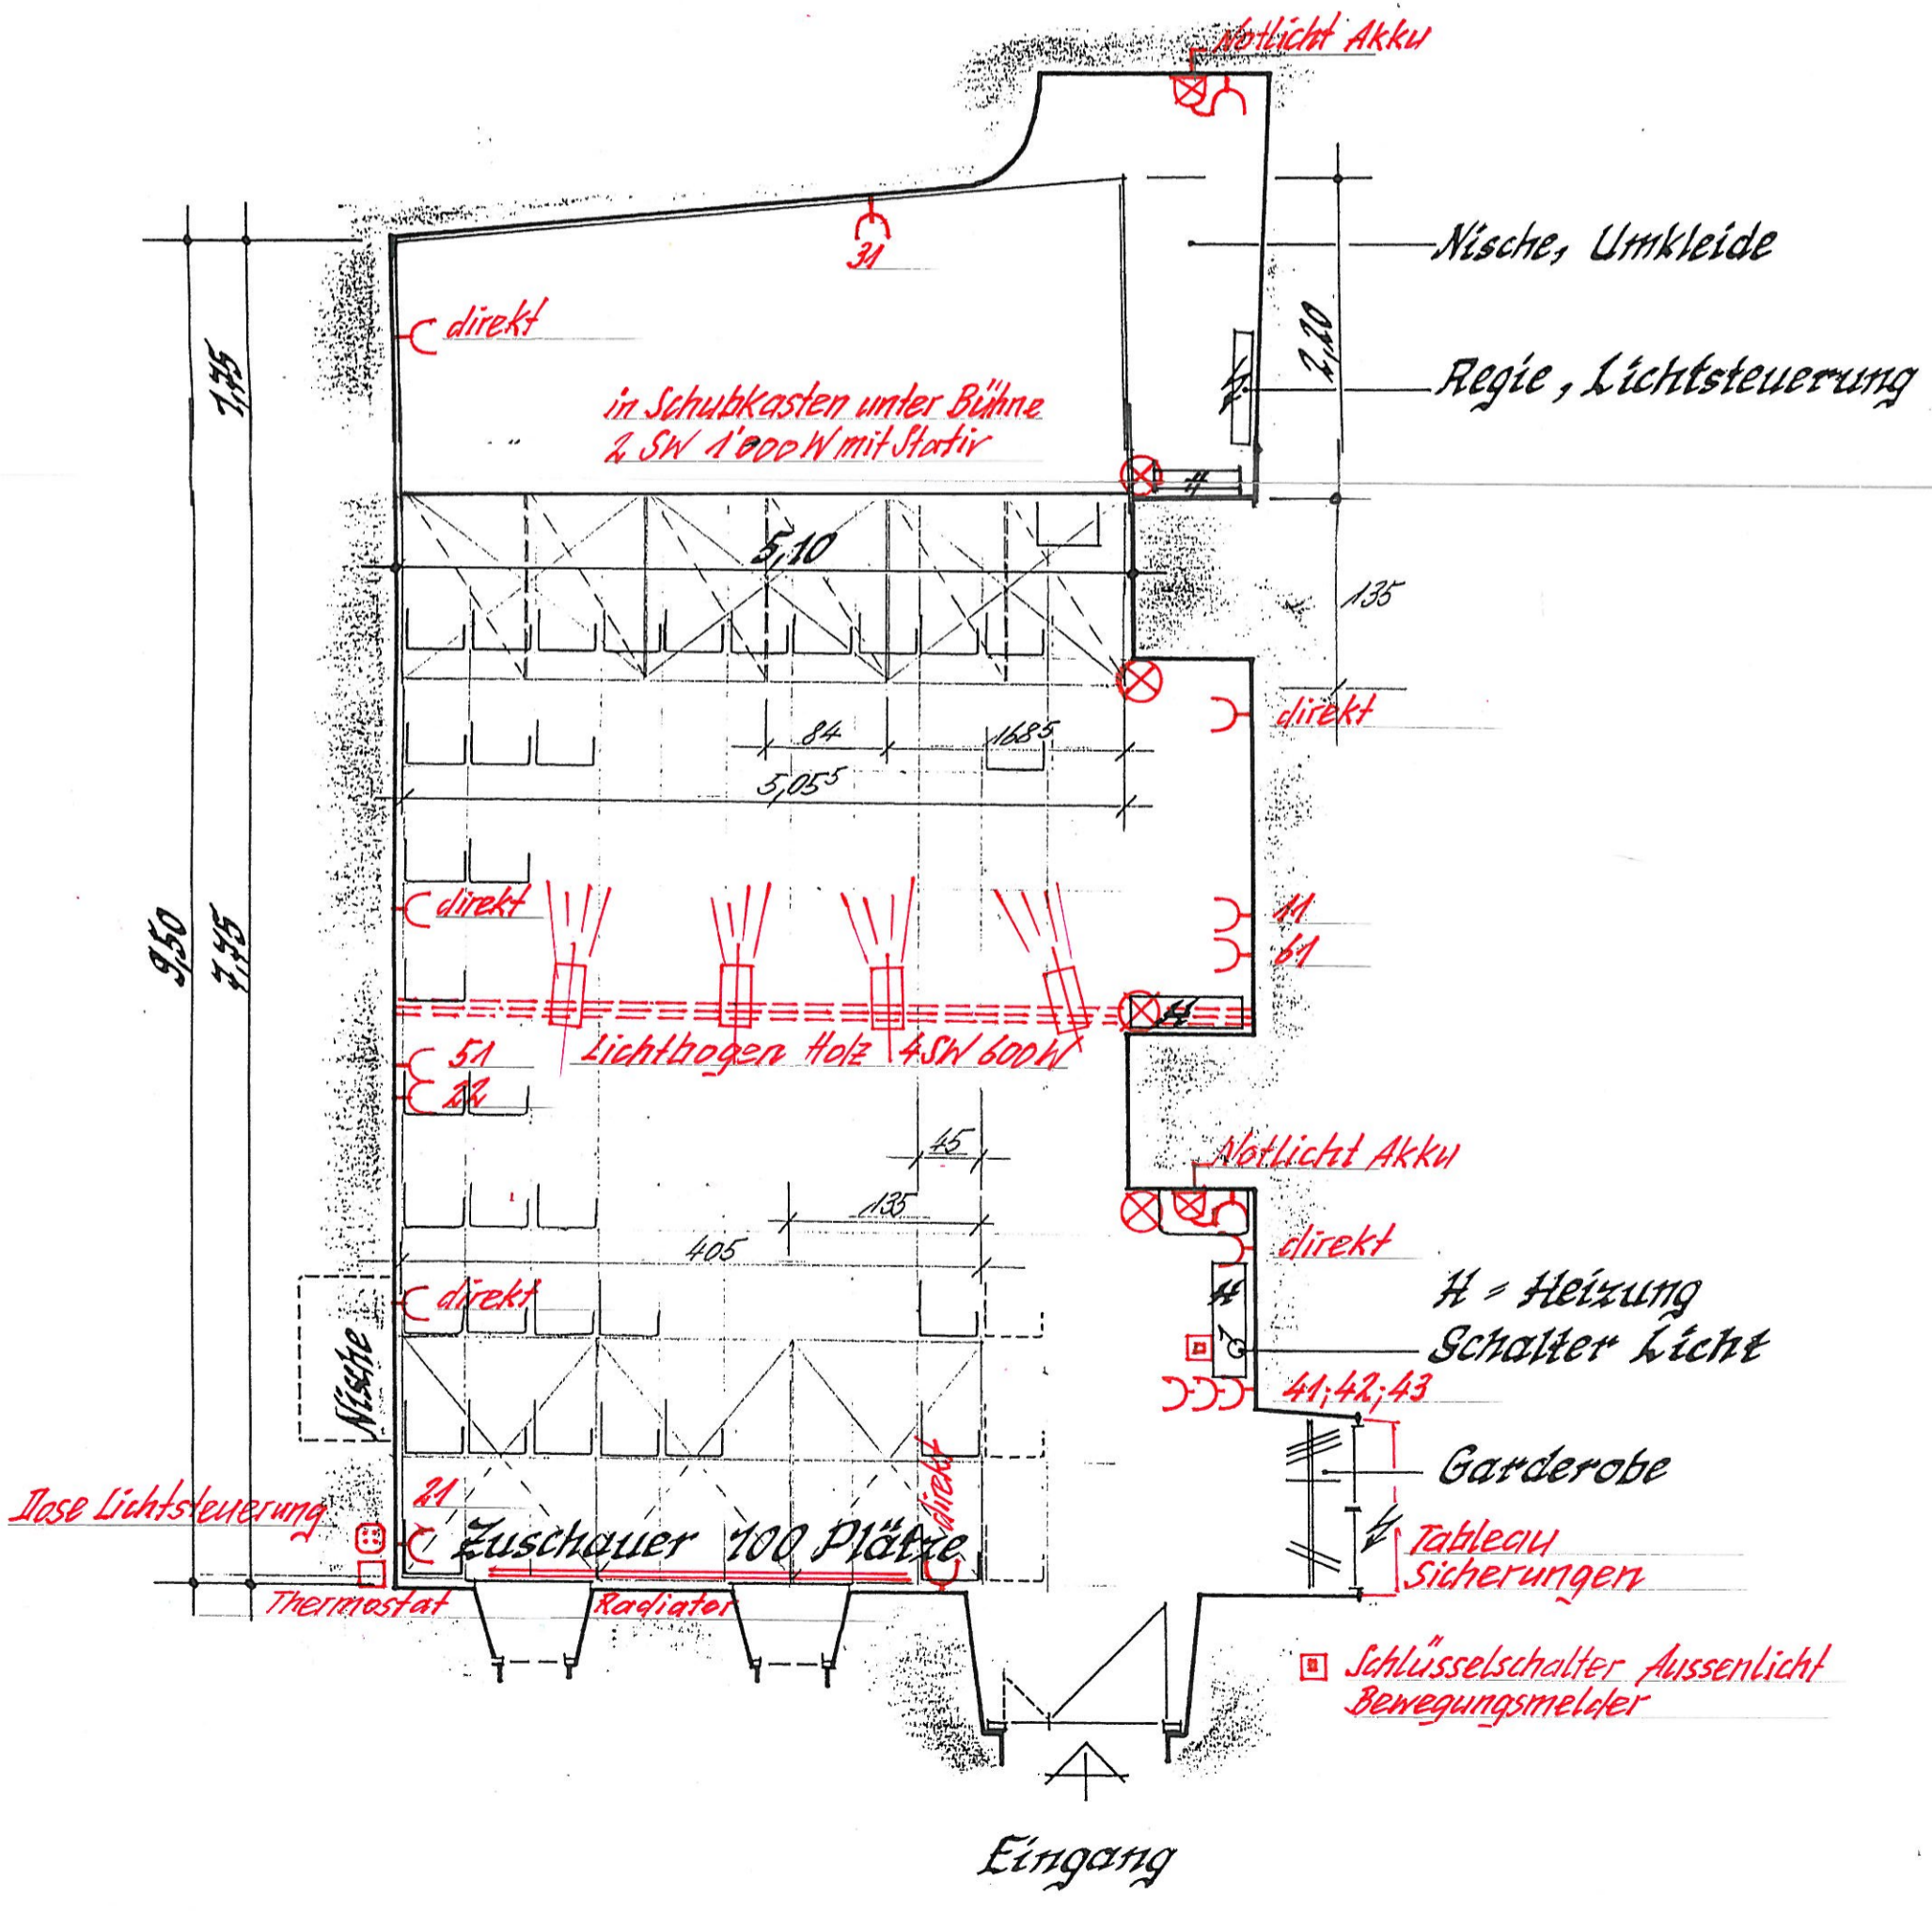 Notlicht Akku
31
Nische, Umkleide
direkt
2,20
1,75
Regie, Lichtsteuerung
in Schubkasten unter Bühne
2 SW 1'000 W mit Stativ
H
5,10
135
direkt
84
168⁵
5,05⁵
direkt
11
61
9,50
7,75
H
51
Lichtbogen Holz 4 SW 600 W
22
45
Notlicht Akku
135
405
direkt
direkt
H
H = Heizung
Schalter Licht
Nische
41; 42; 43
Garderobe
direkt
21
Dose Lichtsteuerung
Zuschauer 100 Plätze
Tableau
Sicherungen
Thermostat
Radiator
Schlüsselschalter Aussenlicht
Bewegungsmelder
Eingang